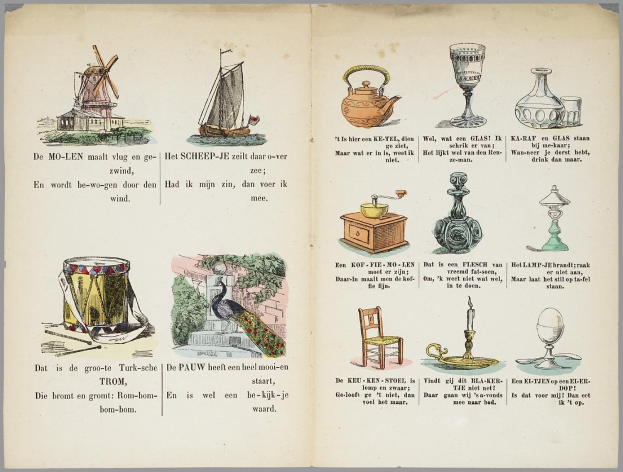 De MO-LEN maalt vlug en ge-
zwind,
En wordt be-wo-gen door den
wind.
Het SCHEEP-JE zeilt daar o-ver
zee;
Had ik mijn zin, dan voer ik
mee.
Dat is de groo-te Turk-sche
TROM,
Die bromt en gromt: Rom-bom-
bom-bom.
De PAUW heeft een heel mooi-en
staart,
En is wel een be-kijk-je
waard.
't Is hier een KE-TEL, dien
ge ziet,
Maar wat er in is, weet ik
niet.
Wel, wat een GLAS! Ik
schrik er van;
Het lijkt wel van den Reu-
ze-man.
KA-RAF en GLAS staan
bij me-kaar;
Wan-neer je dorst hebt,
drink dan maar.
Een KOF-FIE-MO-LEN
moet er zijn;
Daar-in maalt men de kof-
fie fijn.
Dat is een FLESCH van
vreemd fat-soen,
Om, 'k weet niet wat wel,
in te doen.
Het LAMP-JE brandt; raak
er niet aan,
Maar laat het stil op ta-fel
staan.
De KEU-KEN-STOEL is
lomp en zwaar;
Ge-looft ge 't niet, dan
voel het maar.
Vindt gij dit BLA-KER-
TJE niet net!
Daar gaan wij 's a-vonds
mee naar bed.
Een EI-TJEN op een EI-ER-
DOP!
Is dat voor mij! Dan eet
ik 't op.